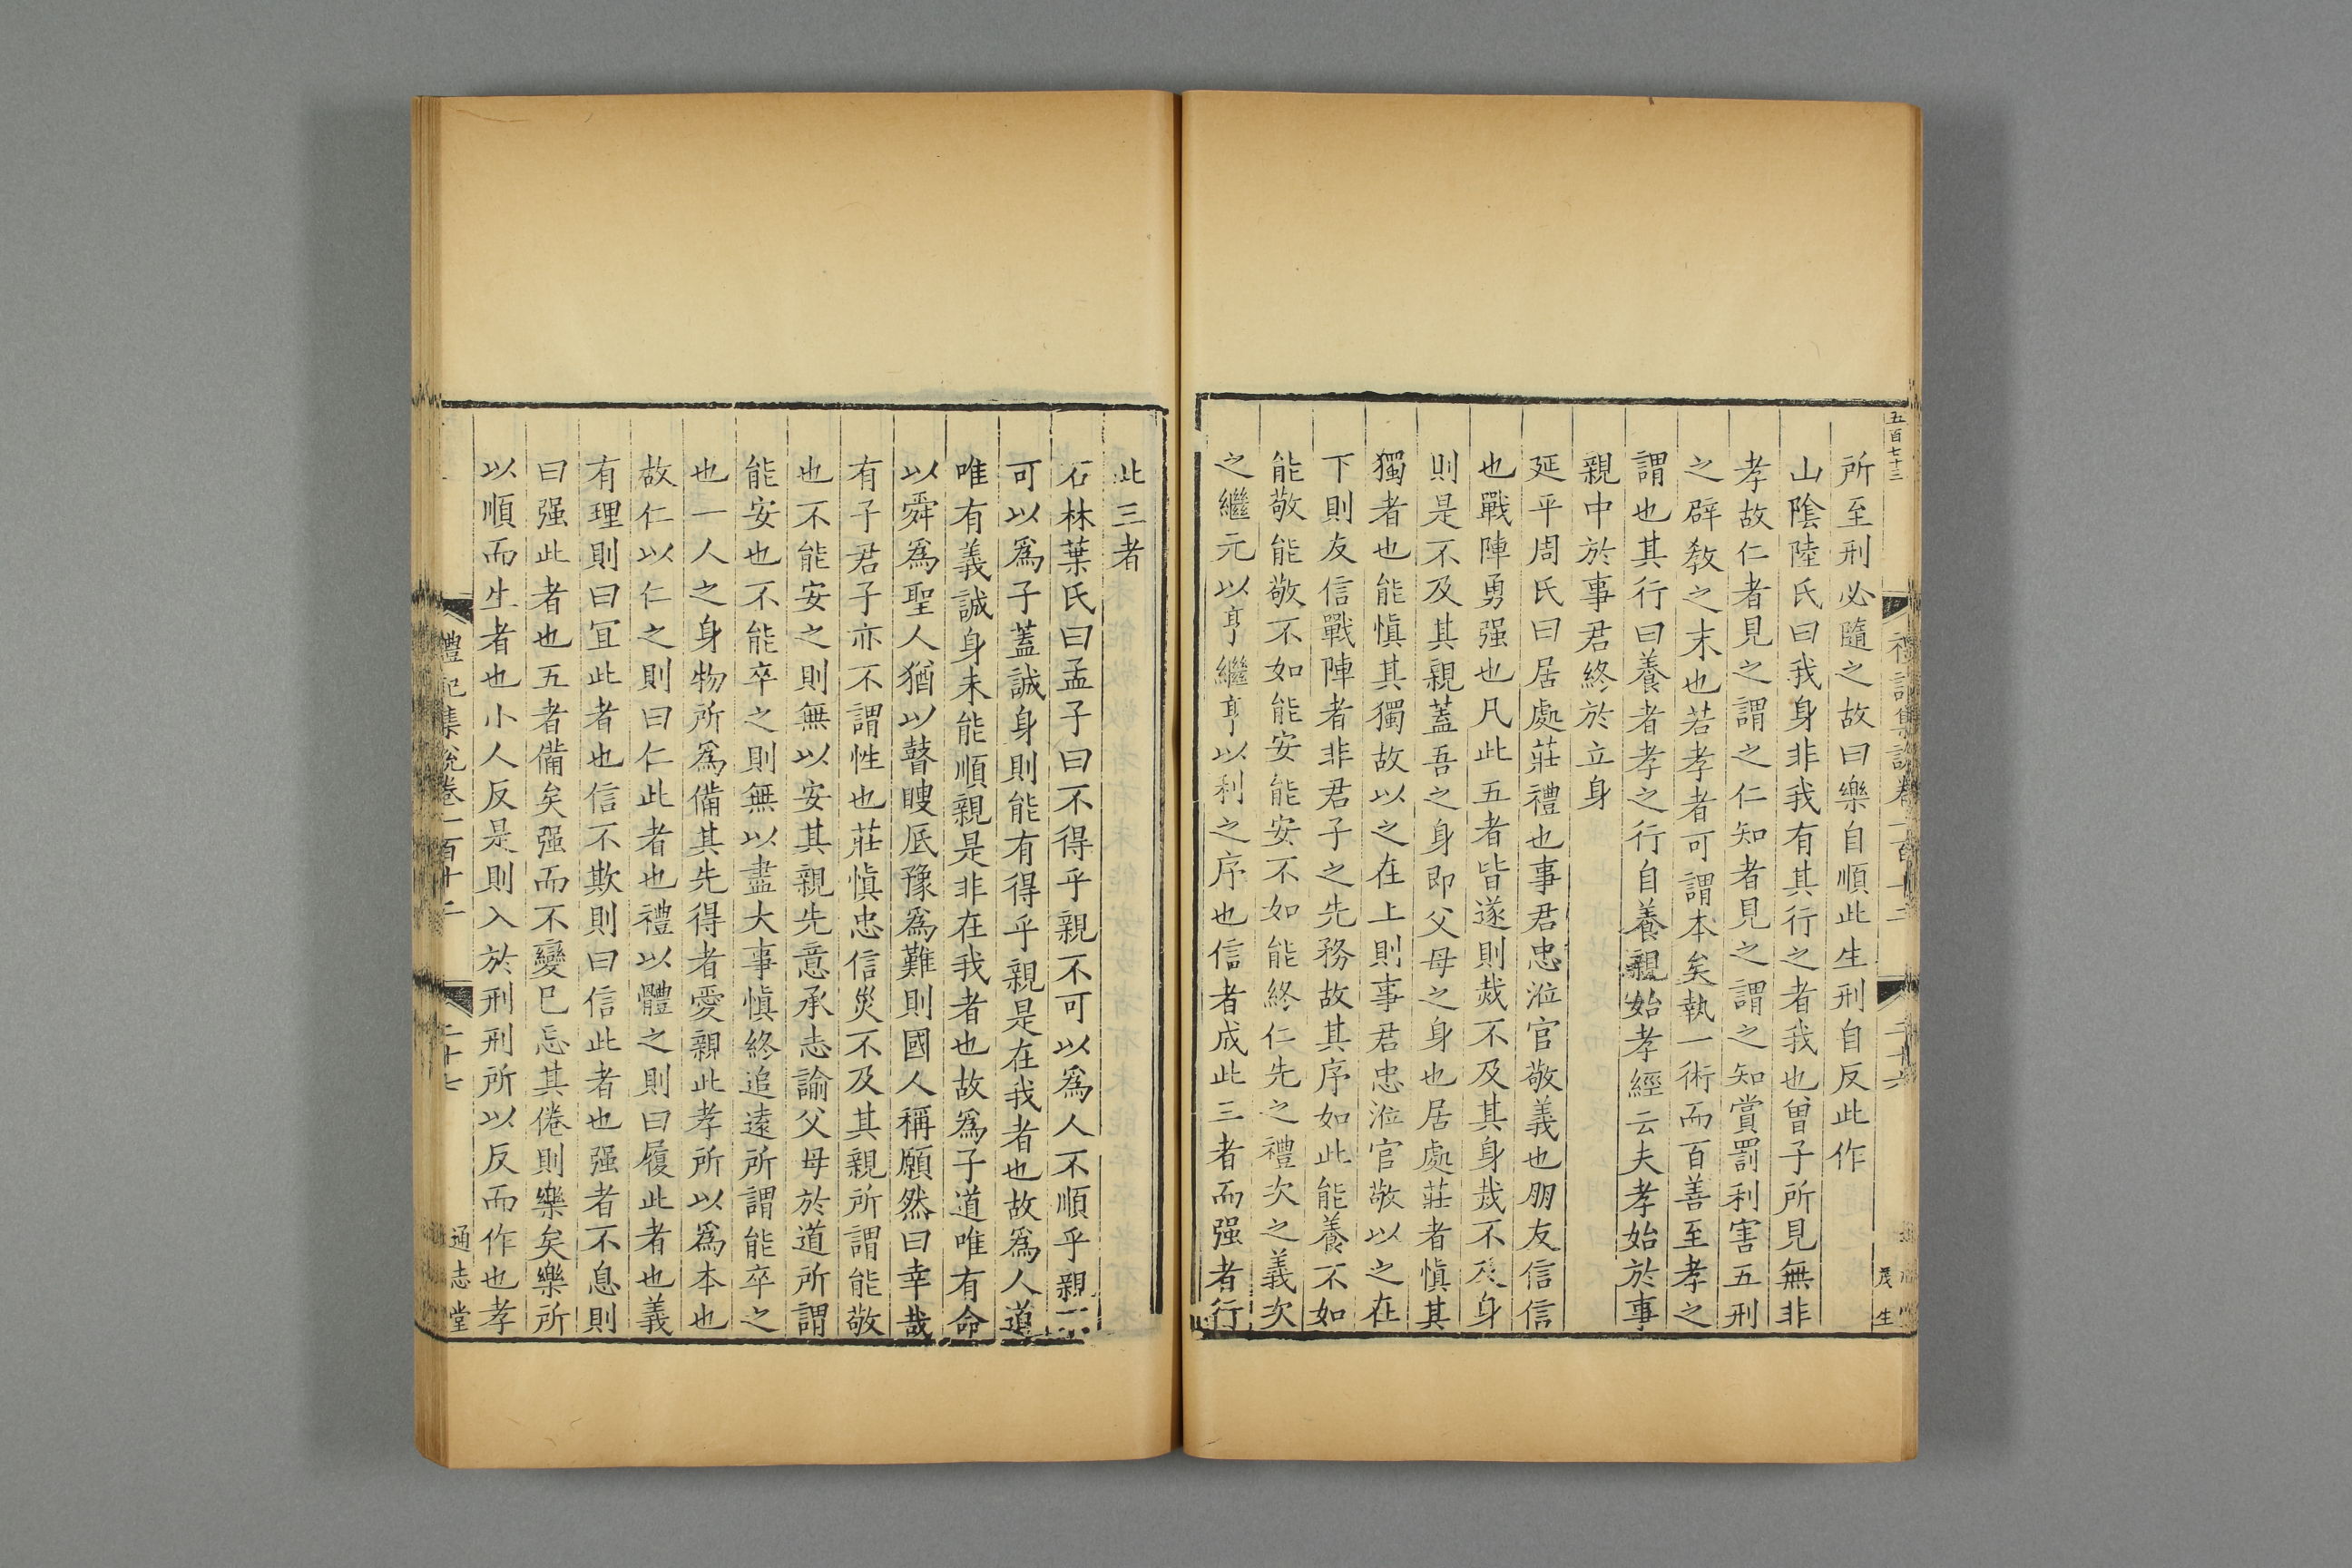 五百七十三
禮記集說卷一百十二
二十六
茂生
所至刑必隨之故曰樂自順此生刑自反此作
山陰陸氏曰我身非我有其行之者我也曾子所見無非
孝故仁者見之謂之仁知者見之謂之知賞罰利害五刑
之辟敎之末也若孝者可謂本矣執一術而百善至孝之
謂也其行曰養者孝之行自養親始孝經云夫孝始於事
親中於事君終於立身
延平周氏曰居處莊禮也事君忠涖官敬義也朋友信信
也戰陣勇强也凡此五者皆遂則烖不及其身烖不及身
則是不及其親蓋吾之身即父母之身也居處莊者愼其
獨者也能愼其獨故以之在上則事君忠涖官敬以之在
下則友信戰陣者非君子之先務故其序如此能養不如
能敬能敬不如能安能安不如能終仁先之禮次之義次
之繼元以亨繼亨以利之序也信者成此三者而强者行
此三者
石林葉氏曰孟子曰不得乎親不可以爲人不順乎親不
可以爲子蓋誠身則能有得乎親是在我者也故爲人道
唯有義誠身未能順親是非在我者也故爲子道唯有命
以舜爲聖人猶以瞽瞍厎豫爲難則國人稱願然曰幸哉
有子君子亦不謂性也莊愼忠信烖不及其親所謂能敬
也不能安之則無以安其親先意承志諭父母於道所謂
能安也不能卒之則無以盡大事愼終追遠所謂能卒之
也一人之身物所爲備其先得者愛親此孝所以爲本也
故仁以仁之則曰仁此者也禮以體之則曰履此者也義
有理則曰宜此者也信不欺則曰信此者也强者不息則
曰强此者也五者備矣强而不變已忘其倦則樂矣樂所
以順而生者也小人反是則入於刑刑所以反而作也孝
禮記集說卷一百十二
二十七
通志堂